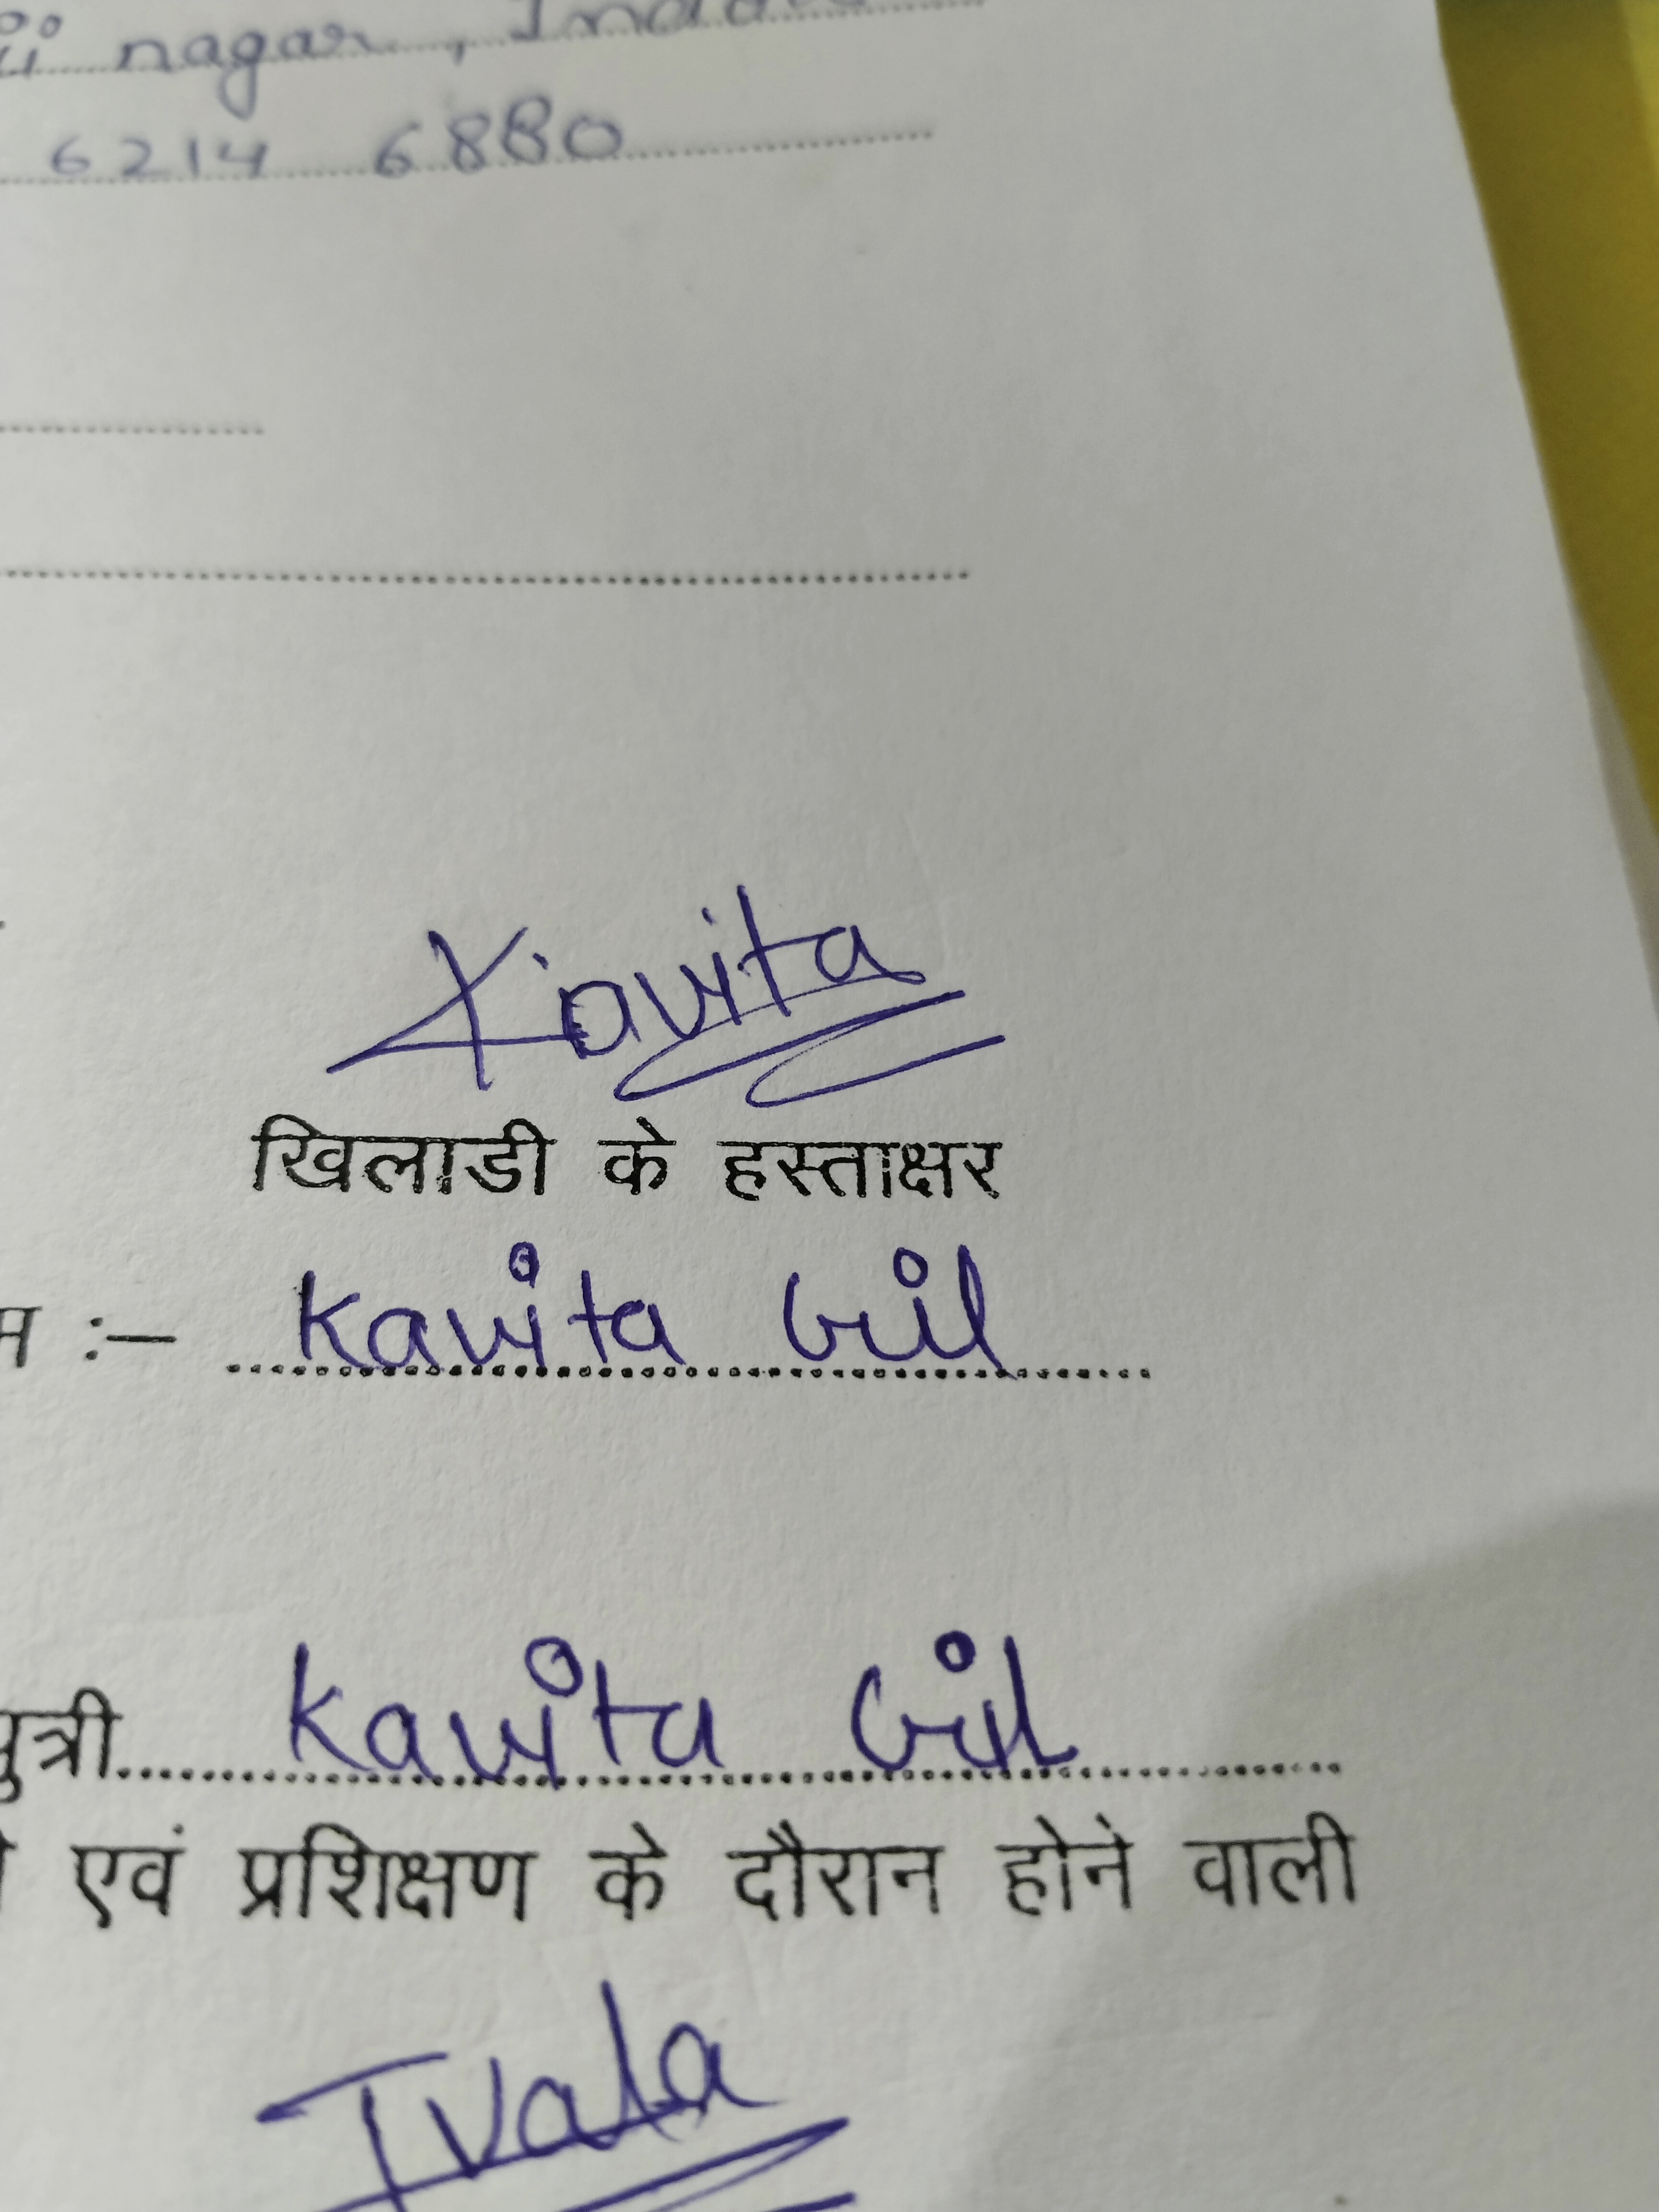 nagar, Indore
6214 6880
Kavita
खिलाडी के हस्ताक्षर
:— Kavita Gil
पुत्री Kavita Gil
एवं प्रशिक्षण के दौरान होने वाली